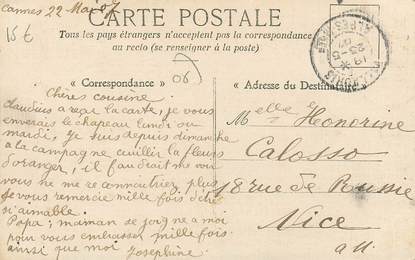 Cannes 22 Mai 07
15€
CARTE POSTALE
Tous les pays étrangers n'acceptent pas la correspondance
au recto (se renseigner à la poste)
« Correspondance »
06
« Adresse du Destinataire »
Chère cousine
Claudius a reçu la carte, je vous
enverais le chapeau lundi ou
mardi, je suis depuis dimanche
à la campagne ceuillir la fleur
d'oranger, il faudrait me voir
vous ne me reconnaitriez plus
Je vous remercie mille fois d'être
si aimable.
Papa, maman se joigne a moi
pour vous embrasser mille fois
ainsi que moi Josephine
Melle Honorine
Calosso
18 rue de Russie
Nice
a M